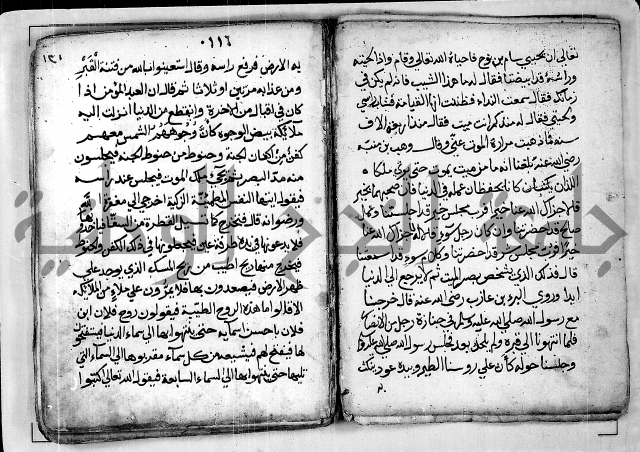 تعالى ان يحيي سام بن نوح فاحياه الله تعالى وقام واذا لحيته
وراسه قد ابيضتا فقال له ما هذا الشيب فاذ لم يكن في
زمانك فقال سمعت النداء فظننت انها القيامة فشاب راسي
ولحيتي فقال له منذ كم انت ميت فقال منذ اربعة الاف
سنة فما ذهبت مرارة الموت عني وقال وهب بن منبه
رضي الله عنه بلغنا انه ما من ميت يموت حتى يرى ملكاه
اللذان يكتبان كانا يحفظان عمله في الدنيا فان صحبهما بخير
قالا جزاك الله عنا خيرا فرب مجلس خير قد اجلستنا وعمل
صالح قد احضرتنا وان كان رجل سوء قالا لا جزاك الله عنا
خيرا فرب مجلس شر قد احضرتنا وكلام سوء قد اسمعتنا
قال فذلك الذي يشخص بصر الميت ثم لا يرجع الى الدنيا
ابدا وروى البراء بن عازب رضي الله عنه قال خرجنا
مع رسول الله صلى الله عليه وسلم في جنازة رجل من الانصار
فلما انتهينا الى قبره ولم يلحد بعد فجلس رسول الله صلى الله عليه وسلم
وجلسنا حوله كأن على روسنا الطير وبيده عود ينكت
٠١١٦
١٢١
به الارض فرفع راسه وقال استعينوا بالله من فتنة القبر
ومن عذابه مرتين او ثلاثا ثم قال ان العبد المؤمن اذا
كان في اقبال من الاخرة وانقطع من الدنيا انزلت اليه
ملائكة بيض الوجوه كأن وجوههم الشمس معهم
كفن من اكفان الجنة وحنوط من حنوط الجنة فيجلسون
منه مد البصر ثم يجيء ملك الموت فيجلس عند راسه
فيقول ايتها النفس المطمئنة الزكية اخرجي الى مغفرة الله
ورضوانه قال فتخرج كما تسيل القطرة من السقا فياخذها
فلا يدعونها في يده طرفة عين فيجعلونها في ذلك الكفن والحنوط
فيخرج منها ريح اطيب من ريح المسك الذي يوجد على
ظهر الارض فيصعدون بها فلا يمرون على ملا من الملائكة
الا قالوا ما هذه الروح الطيبة فيقولون روح فلان ابن
فلان باحسن اسمائه حتى ينتهوا بها الى سماء الدنيا فيستفتحون
لها فيفتح لهم فيشيعه من كل سماء مقربوها الى السماء التي
تليها حتى ينتهوا بها الى السماء السابعة فيقول الله تعالى اكتبوا